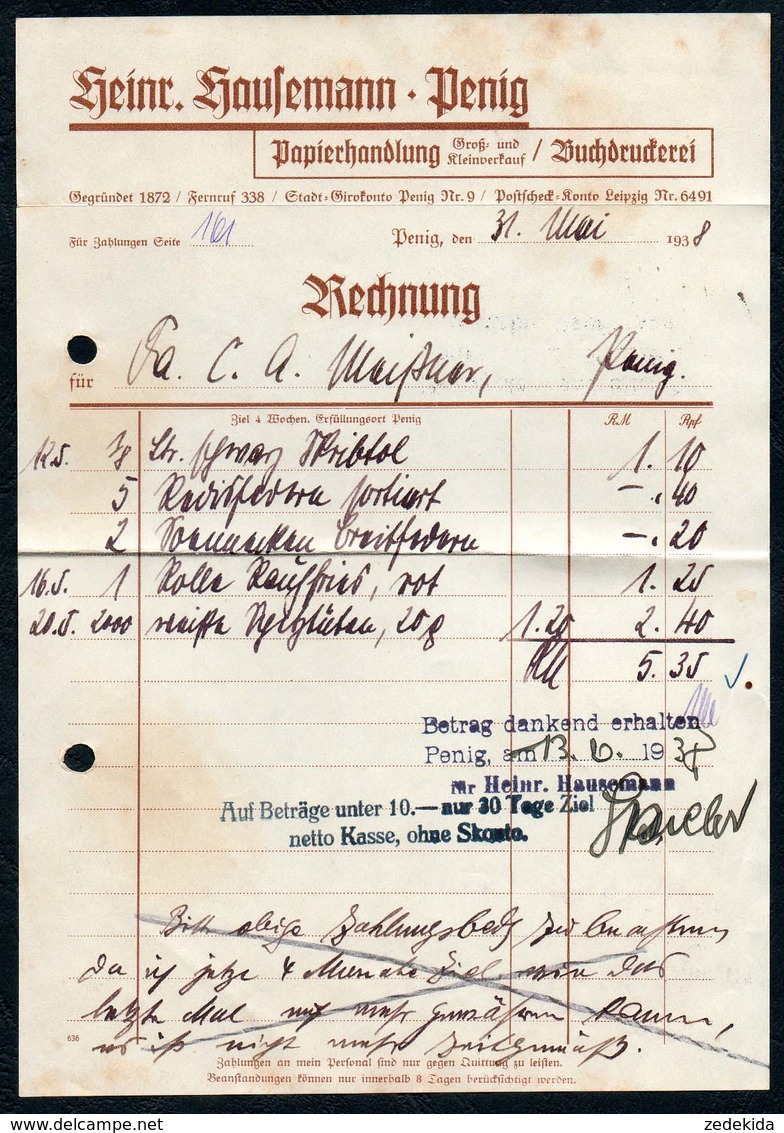 Heinr. Hausemann · Penig
Papierhandlung Groß- und Kleinverkauf / Buchdruckerei
Gegründet 1872 / Fernruf 338 / Stadt-Girokonto Penig Nr. 9 / Postscheck-Konto Leipzig Nr. 6491
Für Zahlungen Seite 161 Penig, den 31. Mai 1938
Rechnung
für Fa. C. A. Meißner, Penig.
Ziel 4 Wochen. Erfüllungsort Penig RM Rpf
12.5. 1/8 Ltr. schwarz Skribtol 1. 10
5 Redisfedern sortiert —. 40
2 Soennecken Breitfedern —. 20
16.5. 1 Rolle rot 1. 25
20.5. 2000 weiße Spitztüten, 20 g 1.20 2. 40
RM 5. 35
Betrag dankend erhalten
Penig, am 13. 6. 1938
Heinr. Hausemann
Auf Beträge unter 10.— nur 30 Tage Ziel
netto Kasse, ohne Skonto.
Bitte obige Zahlungsbed. zu beachten
da ich jetzt 4 Monate Ziel, wie das
letzte Mal nicht mehr gewähren kann,
es ist nicht mehr zeitgemäß.
636
Zahlungen an mein Personal sind nur gegen Quittung zu leisten.
Beanstandungen können nur innerhalb 8 Tagen berücksichtigt werden.
zedekida